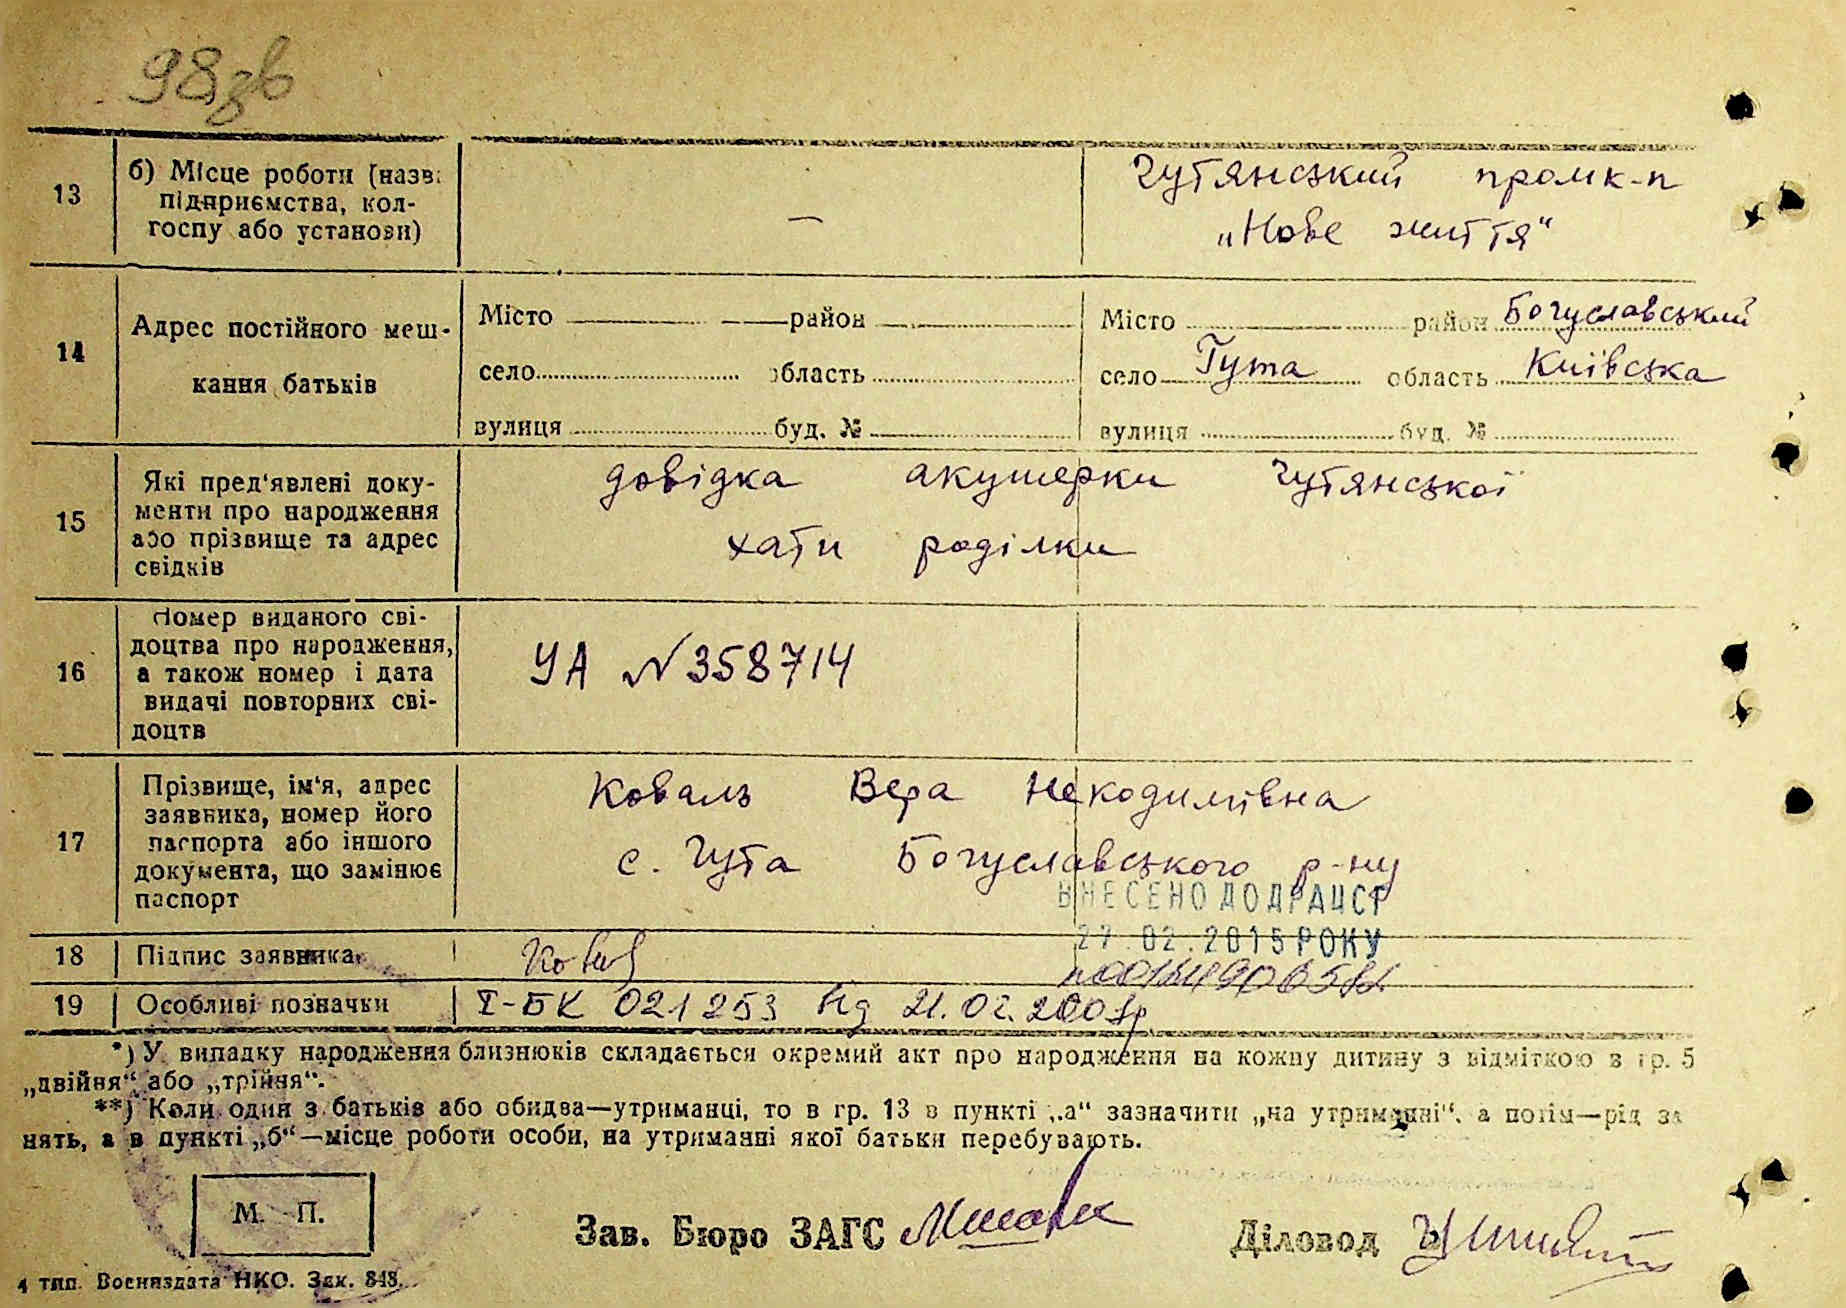 98зв
13 б) Місце роботи (назв. — Гутянський промк-п
підприємства, кол- „Нове життя“
госпу або установи)
14 Адрес постійного меш-
кання батьків
Місто район
село область
вулиця буд. №
Місто район Богуславський
село Гута область Київська
вулиця буд. №
15 Які пред'явлені доку-
менти про народження
або прізвище та адрес
свідків
довідка акушерки Гутянської
хати роділки
16 Номер виданого сві-
доцтва про народження,
а також номер і дата
видачі повторних сві-
доцтв
УА № 358714
17 Прізвище, ім'я, адрес
заявника, номер його
паспорта або іншого
документа, що замінює
паспорт
Коваль Вера Некодимівна
с. Гута Богуславського р-ну
ВНЕСЕНО ДО ДРАЦСГ
27.02.2015 РОКУ
18 Підпис заявника
19 Особливі позначки І-БК 021253 від 21.02.2001р
*) У випадку народження близнюків складається окремий акт про народження на кожну дитину з відміткою в гр. 5
„двійня“ або „трійня“.
**) Коли один з батьків або обидва—утриманці, то в гр. 13 в пункті „а“ зазначити „на утриманні“, а потім—рід за
нять, а в пункті „б“—місце роботи особи, на утриманні якої батьки перебувають.
М. П.
Зав. Бюро ЗАГС Діловод
4 тип. Воениздата НКО. Зак. 848.